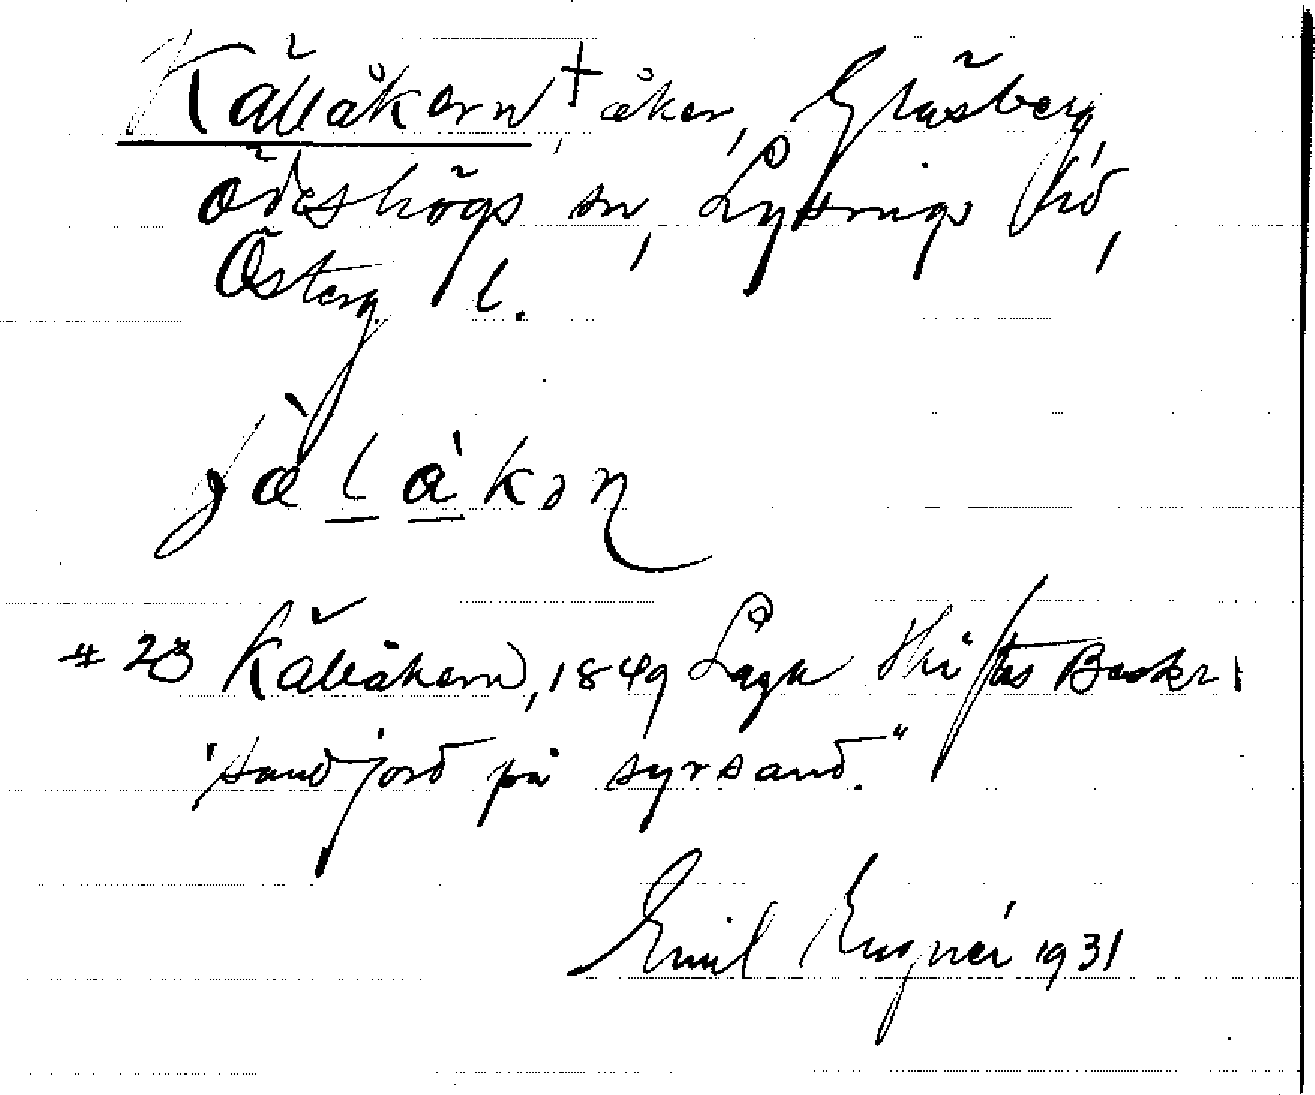 Källåkern † åker, Gläsberg,
Ödeshögs sn, Lysings hd,
Österg l.
jàlàkən
# 23 Källåkern, 1849 Laga Skiftes Beskr.
"sandjord på syrsand."
Emil 1931